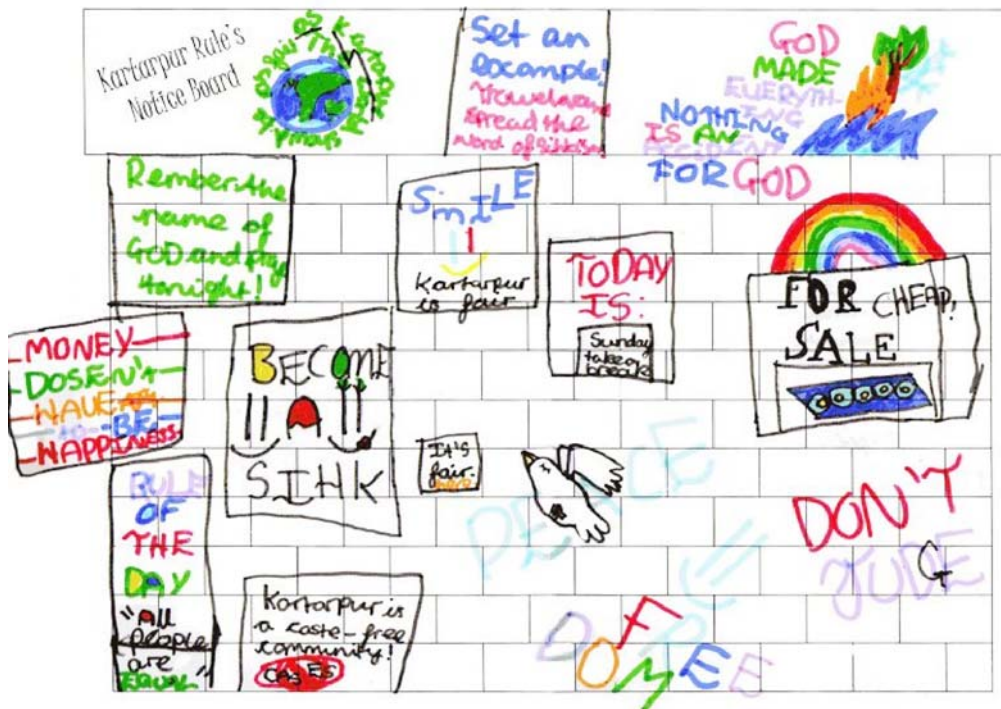 Kartarpur Rule's
Notice Board
Set an
example!
Travel and
spread the
word of Sikhism
GOD
MADE
EVERYTH-
ING
NOTHING
IS AN
ACCIDENT
FOR GOD
Rember the
name of
GOD and pray
tonight!
SmILE
Kartarpur
is fair
TODAY
IS:
Sunday
take a
break
FOR CHEAP!
SALE
MONEY
DOSEN'T
HAVE
TO BE
HAPPINESS
BECOME
A
SIHK
It's
fair
here
PEACE
DON'T
JUDGE
RULE
OF
THE
DAY
"All
people
are
EQUAL"
Kartarpur is
a caste-free
community!
CASES